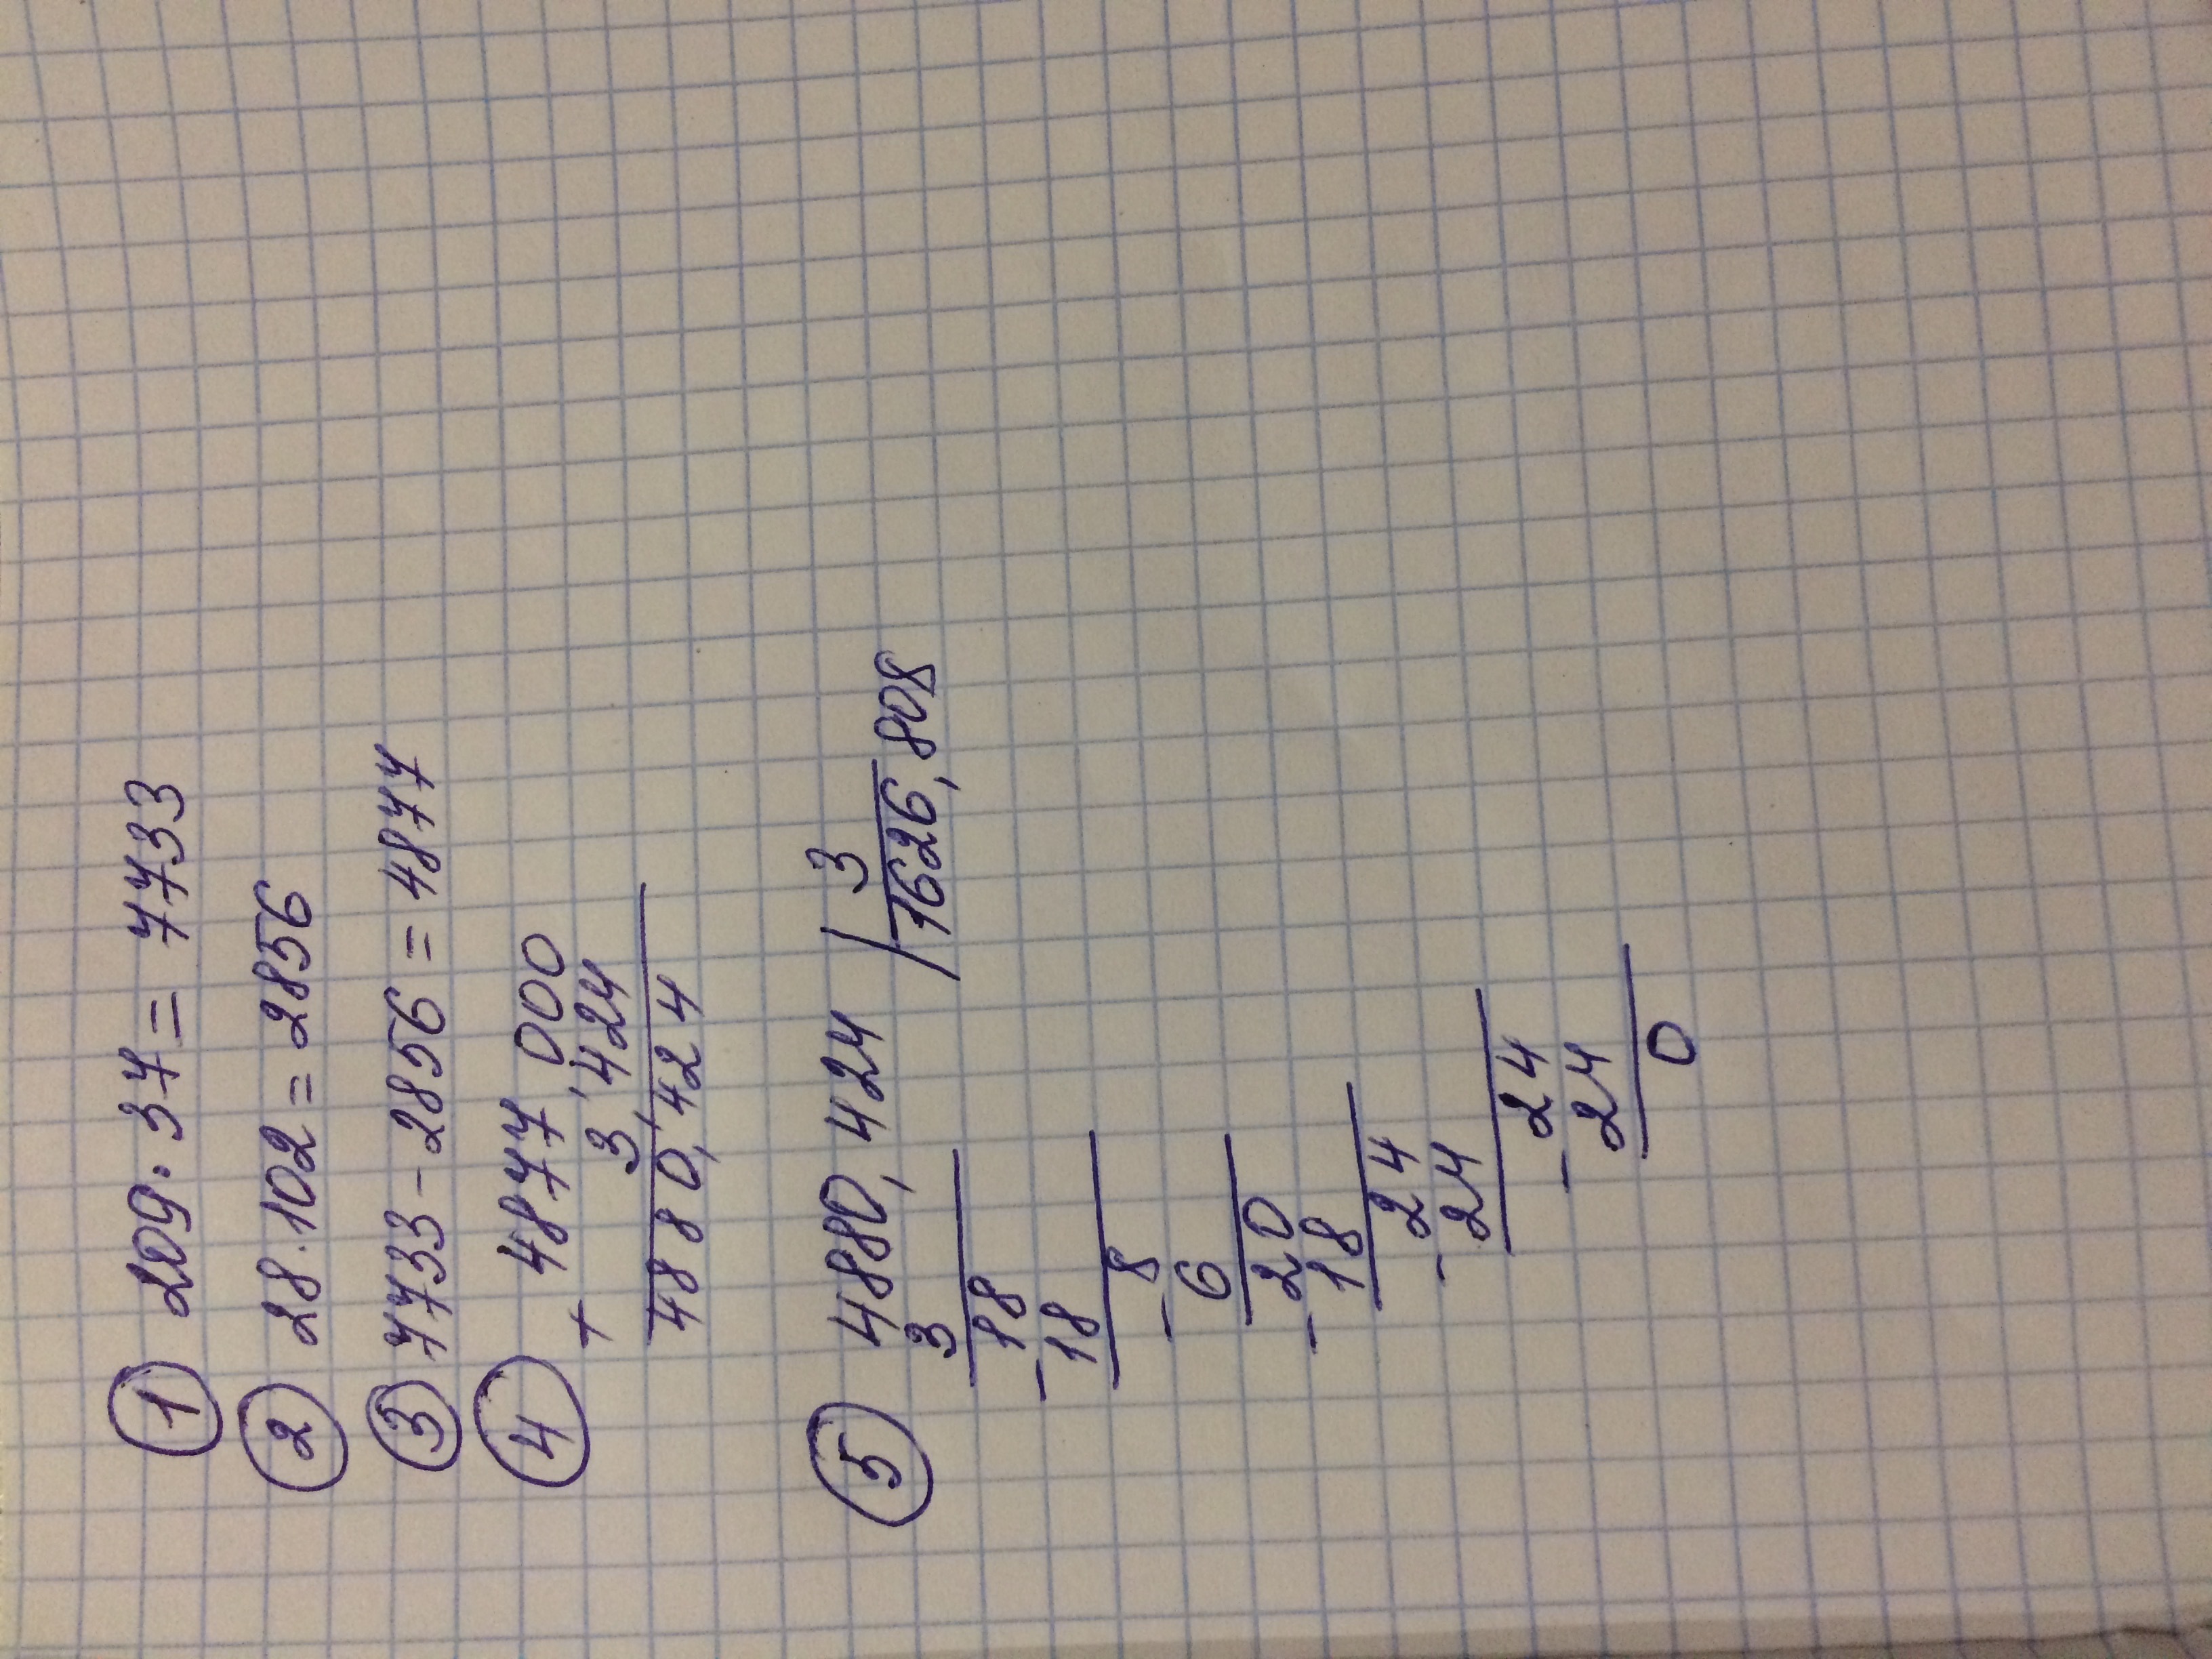 1 209·37=7733
2 28·102=2856
3 7733-2856=4877
4 4877,000
+
3,424
4880,424
5 4880,424 | 3
3 1626,808
18
-
18
8
-
6
20
-
18
24
-
24
24
-
24
0